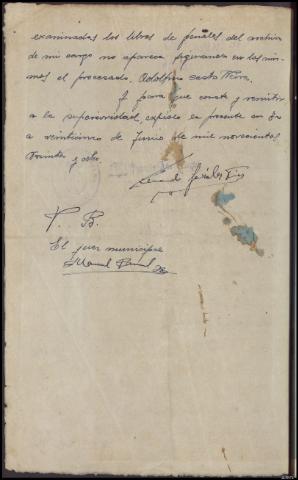 examinados los libros de penales del archivo
de mi cargo no aparece figurando en los mis-
mos el procesado. Adolfino
Y para que conste y remitir
a la superioridad, expido la presente en
a veinticinco de Junio de mil novecientos
treinta y ocho.
V. B.
El juez municipal
Manuel